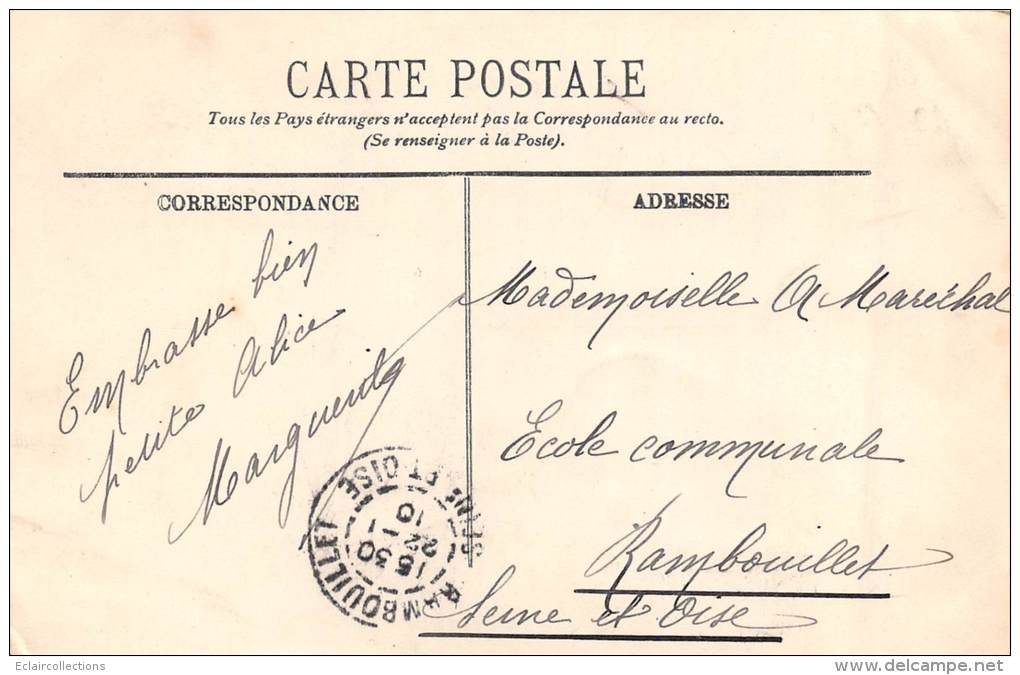 CARTE POSTALE
Tous les Pays étrangers n'acceptent pas la Correspondance au recto.
(Se renseigner à la Poste).
CORRESPONDANCE
Embrasse bien
petite Alice
Marguerite
ADRESSE
Mademoiselle A Maréchal
Ecole communale
Rambouillet
Seine et Oise
RAMBOUILLET
SEINE ET OISE
15 30
22 - 1
10
Eclaircollections
delcampe.net